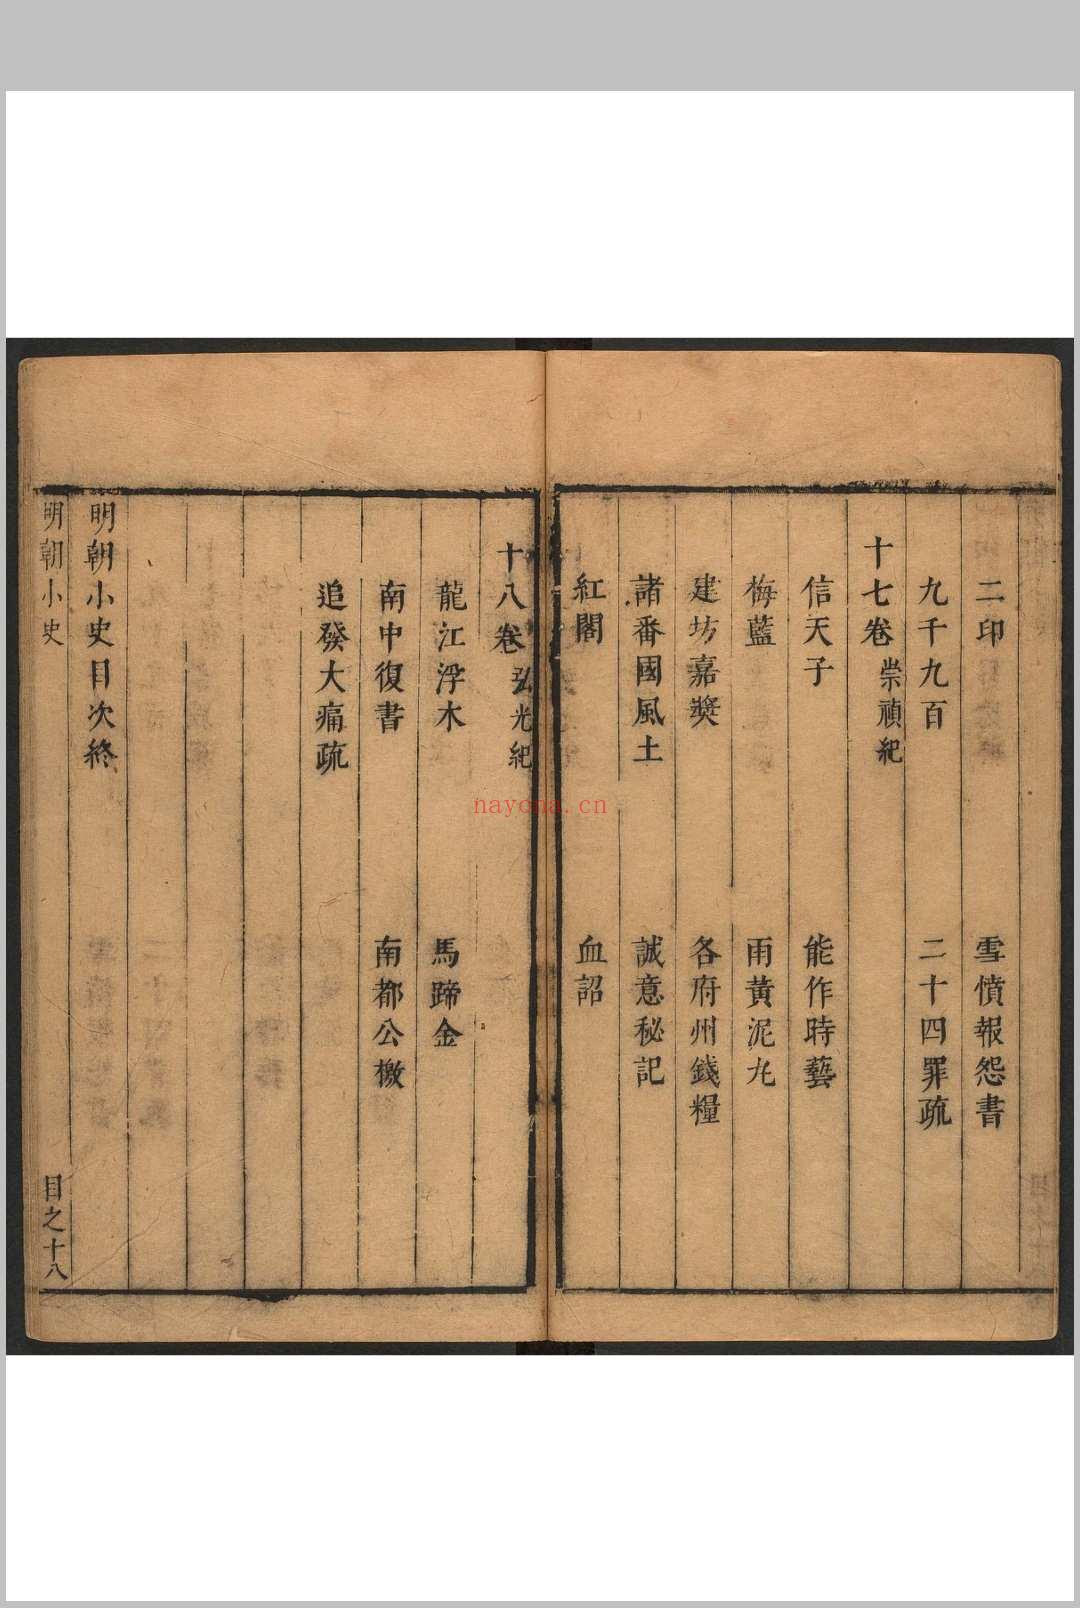 二印　雪憤報怨書
九千九百　二十四罪疏
十七卷 崇禎紀
信天子　能作時藝
梅藍　雨黃泥丸
建坊嘉獎　各府州錢糧
諸番國風土　誠意秘記
紅閣　血詔
十八卷 弘光紀
龍江浮木　馬蹄金
南中復書　南都公檄
追發大痛疏
明朝小史目次終
明朝小史　目之十八
nayona.cn